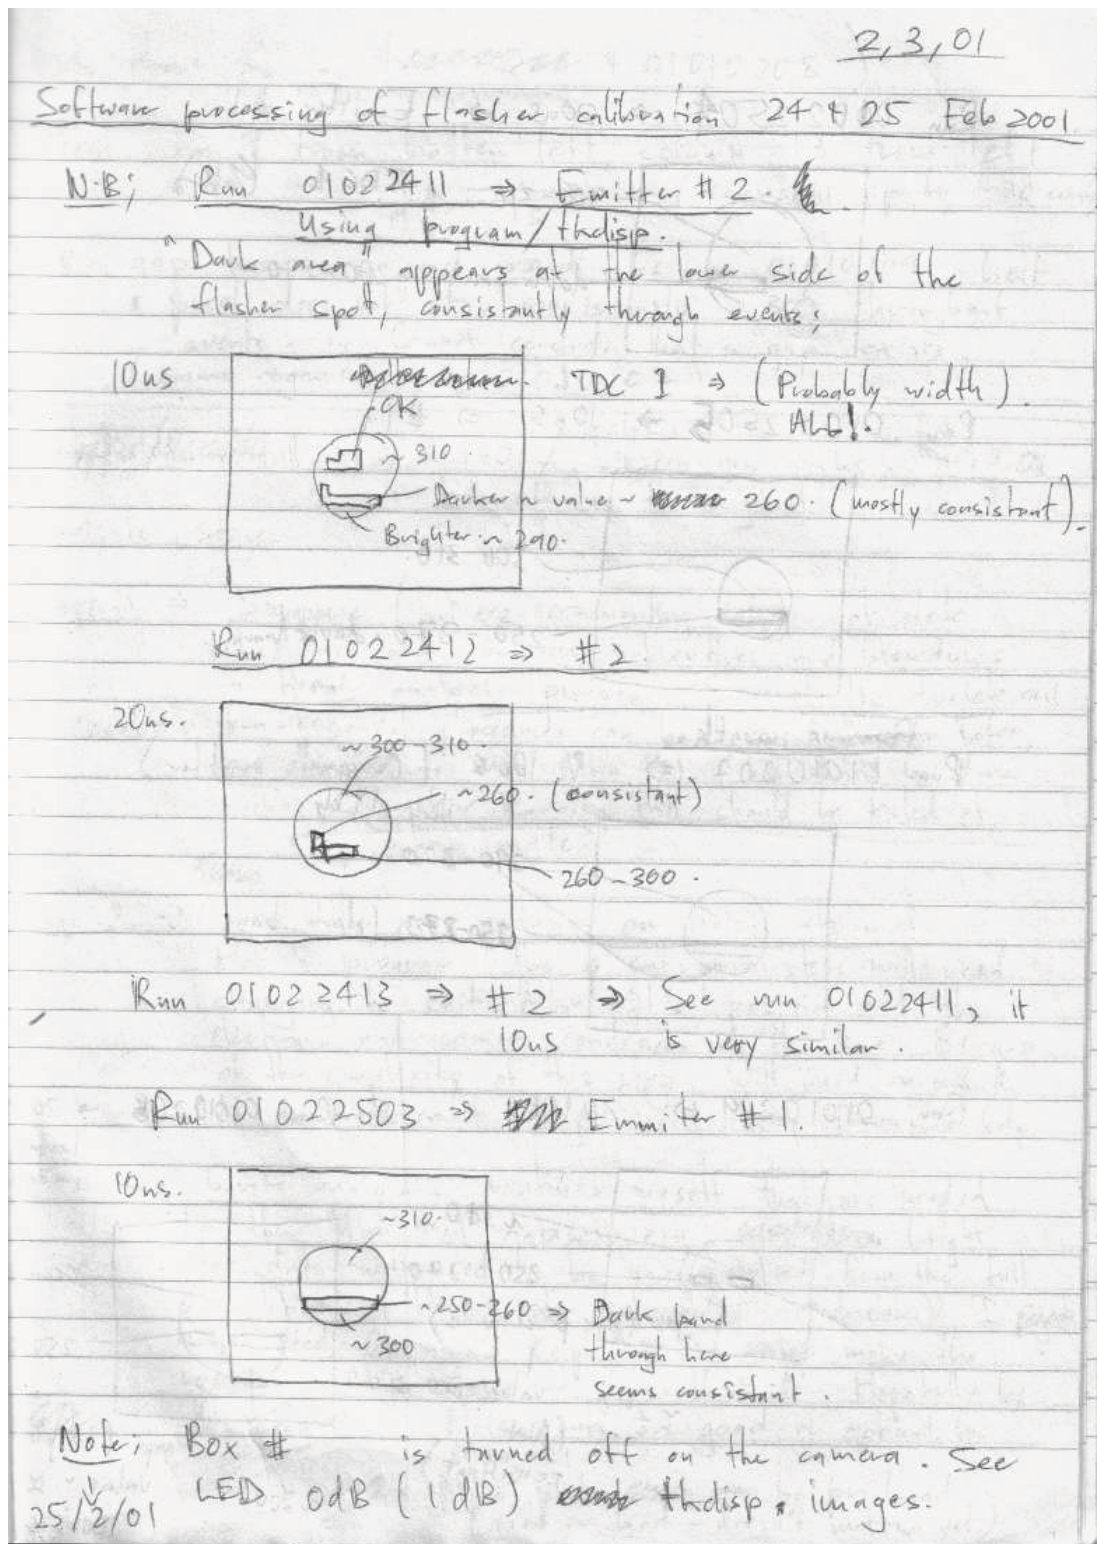 2,3,01
Software processing of flasher calibration 24 & 25 Feb 2001
N.B; Run 01022411 ⇒ Emitter # 2.
Using program/thdisp.
"Dark area" appears at the lower side of the
flasher spot, consistantly through events;
10ns TDC 1 ⇒ (Probably width).
OK ALG!.
~ 310.
Darker ~ value ~ 260. (mostly consistant).
Brighter ~ 290.
Run 01022412 ⇒ #2.
20ns.
~300-310.
~260. (consistant)
260-300.
Run 01022413 ⇒ #2 ⇒ See run 01022411, it
10ns is very similar.
Run 01022503 ⇒ Emmiter #1.
10ns.
~310.
~250-260 ⇒ Dark band
~300 through here
seems consistant.
Note; Box # is turned off on the camera. See
LED 0dB (1dB) thdisp images.
25/2/01